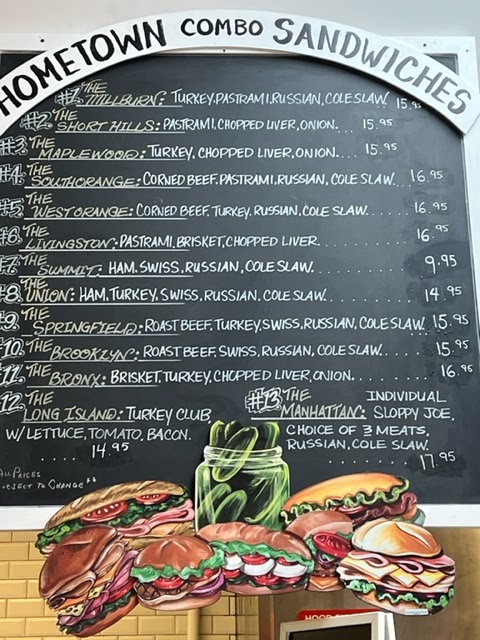 HOMETOWN COMBO SANDWICHES
#1. THE MILLBURN: TURKEY, PASTRAMI, RUSSIAN, COLE SLAW 15.95
#2. THE SHORT HILLS: PASTRAMI, CHOPPED LIVER, ONION... 15.95
#3. THE MAPLEWOOD: TURKEY, CHOPPED LIVER, ONION.... 15.95
#4. THE SOUTHORANGE: CORNED BEEF, PASTRAMI, RUSSIAN, COLE SLAW... 16.95
#5. THE WEST ORANGE: CORNED BEEF, TURKEY, RUSSIAN, COLE SLAW...... 16.95
#6. THE LIVINGSTON: PASTRAMI, BRISKET, CHOPPED LIVER............ 16.95
#7. THE SUMMIT: HAM, SWISS, RUSSIAN, COLE SLAW............ 9.95
#8. THE UNION: HAM, TURKEY, SWISS, RUSSIAN, COLE SLAW........... 14.95
#9. THE SPRINGFIELD: ROAST BEEF, TURKEY, SWISS, RUSSIAN, COLE SLAW. 15.95
#10. THE BROOKLYN: ROAST BEEF, SWISS, RUSSIAN, COLE SLAW...... 15.95
#11. THE BRONX: BRISKET, TURKEY, CHOPPED LIVER, ONION.......... 16.95
12. THE LONG ISLAND: TURKEY CLUB
W/ LETTUCE, TOMATO, BACON.
.... 14.95
#13 THE MANHATTAN: INDIVIDUAL SLOPPY JOE,
CHOICE OF 3 MEATS,
RUSSIAN, COLE SLAW.
...... 17.95
ALL PRICES
SUBJECT TO CHANGE